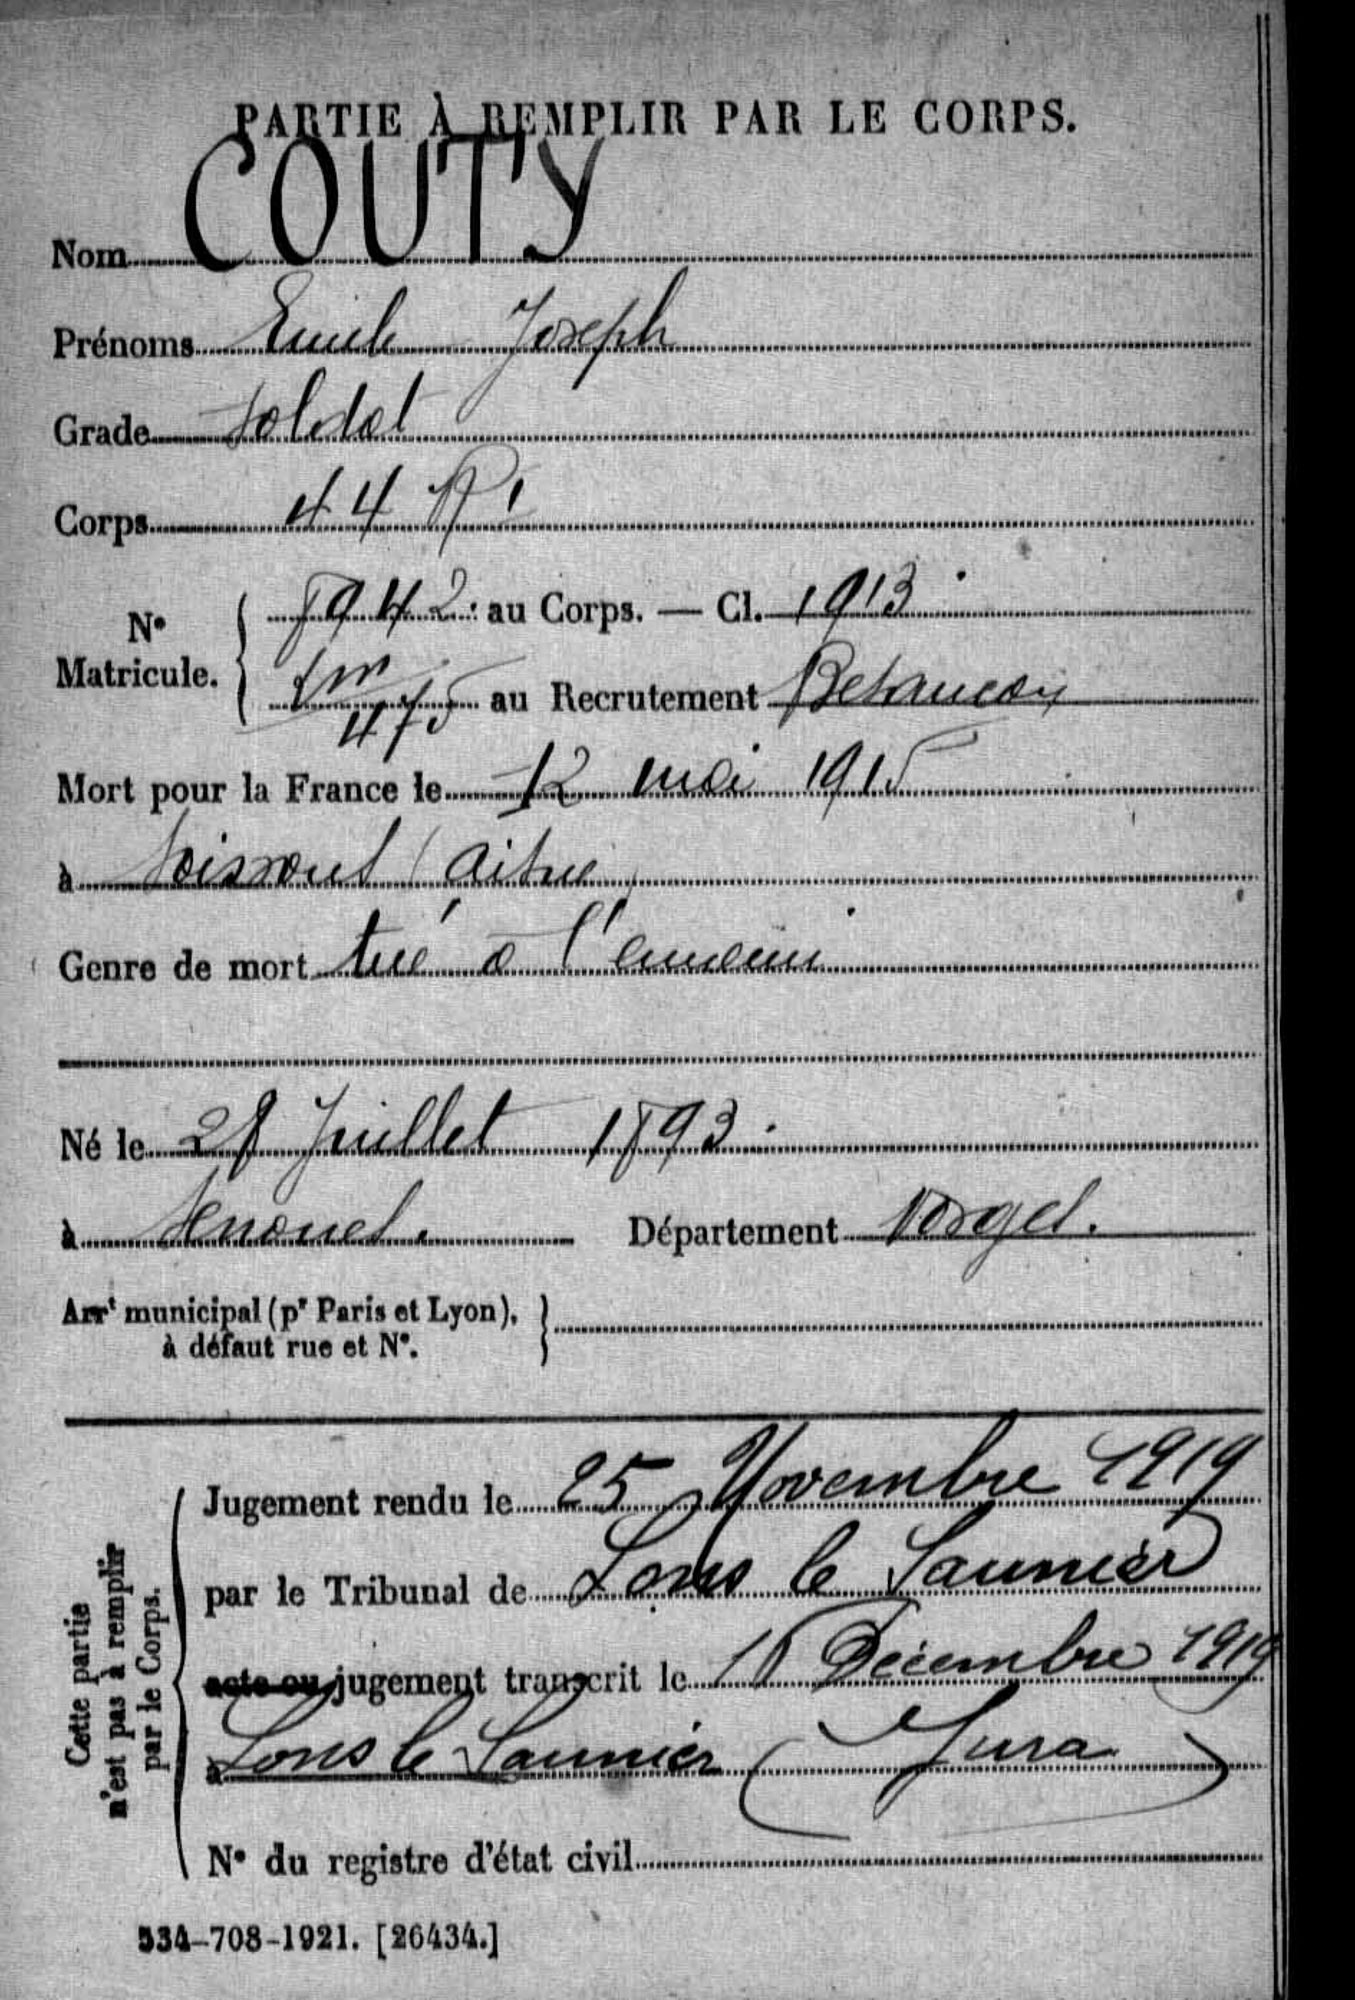 PARTIE À REMPLIR PAR LE CORPS.
Nom COUTY
Prénoms Emile Joseph
Grade Soldat
Corps 44 RI
N° Matricule. 8942 au Corps. — Cl. 1913
475 au Recrutement Besancon
Mort pour la France le 12 mai 1915
à Soissons (Aisne)
Genre de mort tué à l'ennemi
Né le 28 Juillet 1893
à Senones. Département Vosges.
Arrt municipal (pr Paris et Lyon),
à défaut rue et N°.
Cette partie
n'est pas à remplir
par le Corps.
Jugement rendu le 25 Novembre 1919
par le Tribunal de Lons le Saunier
acte ou jugement transcrit le Décembre 1919
à Lons le Saunier (Jura)
N° du registre d'état civil
534-708-1921. [26434.]